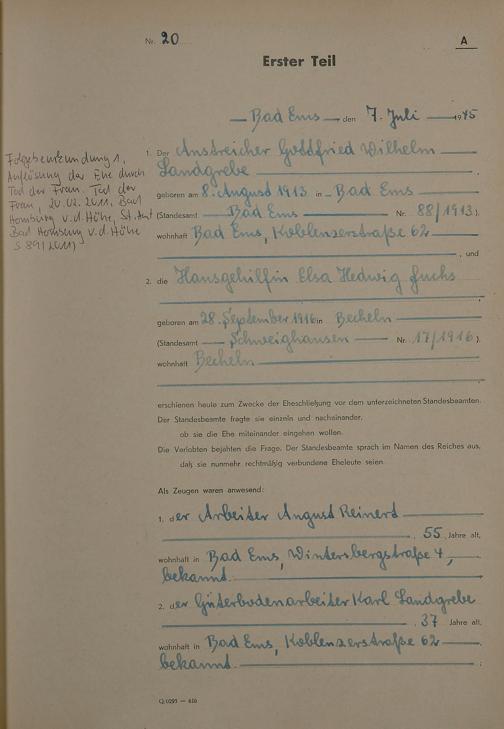 Nr. 20
A
Erster Teil
Bad Ems, den 7. Juli 1945
Folgebeurkundung 1,
Auflösung der Ehe durch
Tod der Frau. Tod der
Frau, 20.02.2011, Bad
Homburg v.d. Höhe, St.Amt
Bad Homburg v.d. Höhe
S 89/2011)
1. Der Anstreicher Gottfried Wilhelm
Landgrebe
geboren am 8. August 1913 in Bad Ems
(Standesamt Bad Ems Nr. 88/1913).
wohnhaft Bad Ems, Koblenzerstraße 62
, und
2. die Hausgehilfin Elsa Hedwig Fuchs
geboren am 28. September 1916 in Becheln
(Standesamt Schweighausen Nr. 17/1916).
wohnhaft Becheln
erschienen heute zum Zwecke der Eheschließung vor dem unterzeichneten Standesbeamten.
Der Standesbeamte fragte sie einzeln und nacheinander,
ob sie die Ehe miteinander eingehen wollen.
Die Verlobten bejahten die Frage. Der Standesbeamte sprach im Namen des Reiches aus,
daß sie nunmehr rechtmäßig verbundene Eheleute seien.
Als Zeugen waren anwesend:
1. der Arbeiter August Reinerd
, 55 Jahre alt,
wohnhaft in Bad Ems, Wintersbergstraße 4,
bekannt.
2. der Güterbodenarbeiter Karl Landgrebe
, 37 Jahre alt,
wohnhaft in Bad Ems, Koblenzerstraße 62
bekannt.
Q/0293 — 610